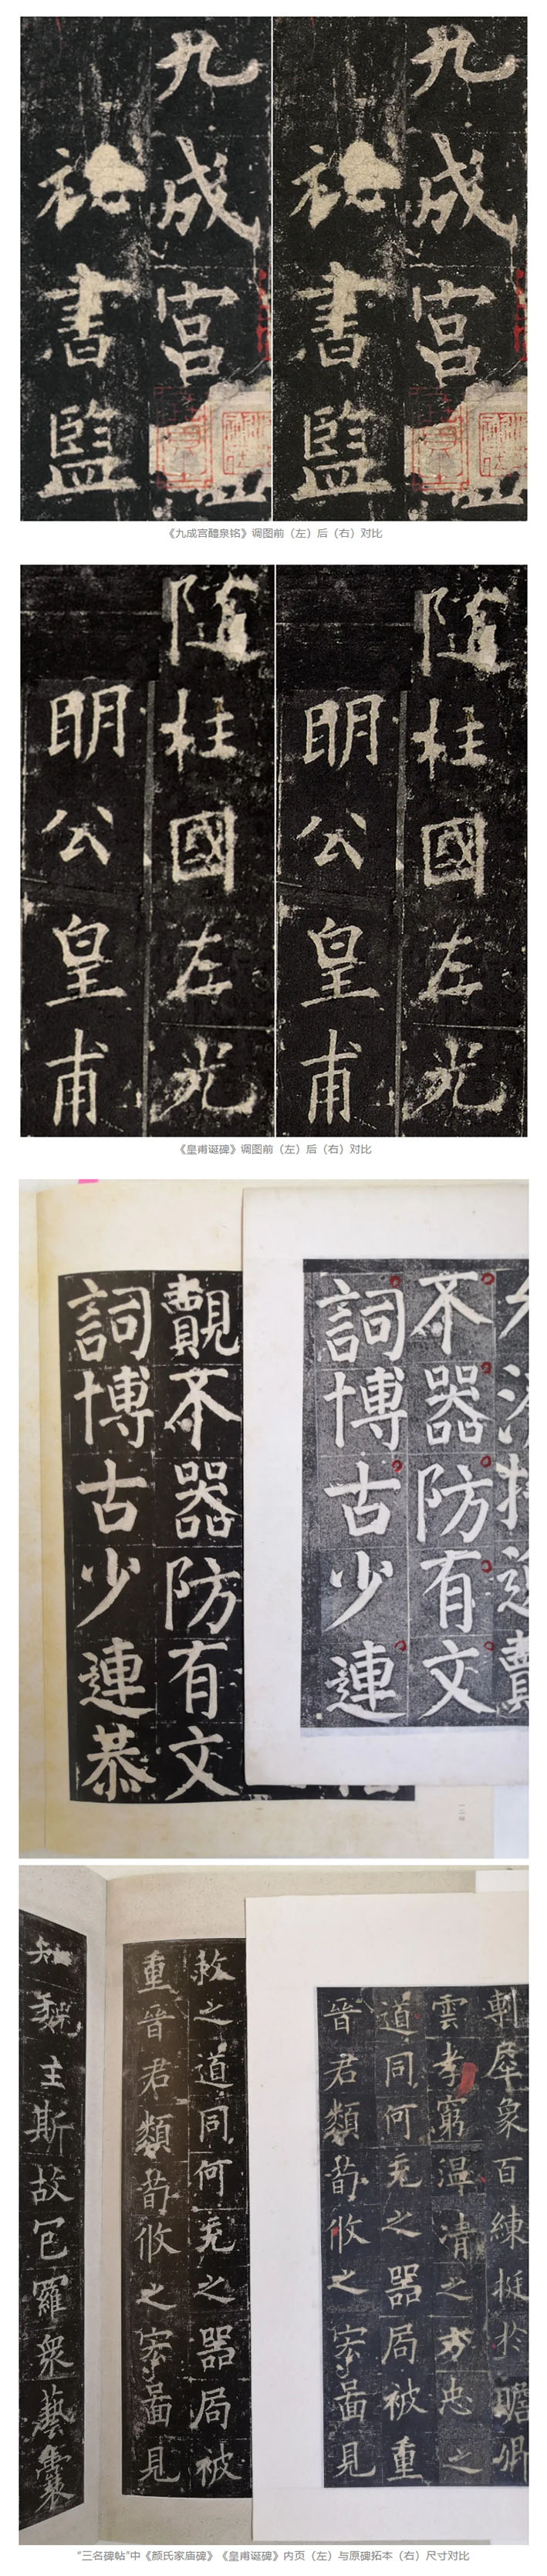 九成宫
秘書監
九成宫
秘書監
《九成宫醴泉铭》调图前（左）后（右）对比
隨柱國左光
明公皇甫
隨柱國左光
明公皇甫
《皇甫诞碑》调图前（左）后（右）对比
覿不器防有文
詞博古少連恭
不器防有文
詞博古少連
一二四
敕之道同何充之器局被
重晉君類荀攸之宏啚見
主斯故包羅衆藝囊
斬犀象百練挺於
雲孝窮温凊之方忠之
道同何充之器局被重
晉君類荀攸之宏啚見
“三名碑帖”中《颜氏家庙碑》《皇甫诞碑》内页（左）与原碑拓本（右）尺寸对比